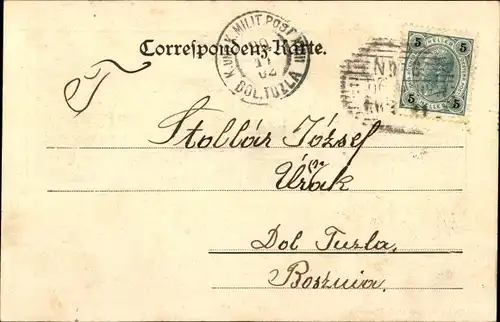 Correspondenz-Karte.
K.UND K. MILIT. POST XVIII
02
DOL. TUZLA
5 HELLER 5
5 HELLER 5
T
Stollár József
Úrak
Dol Tuzla.
Bosznia.